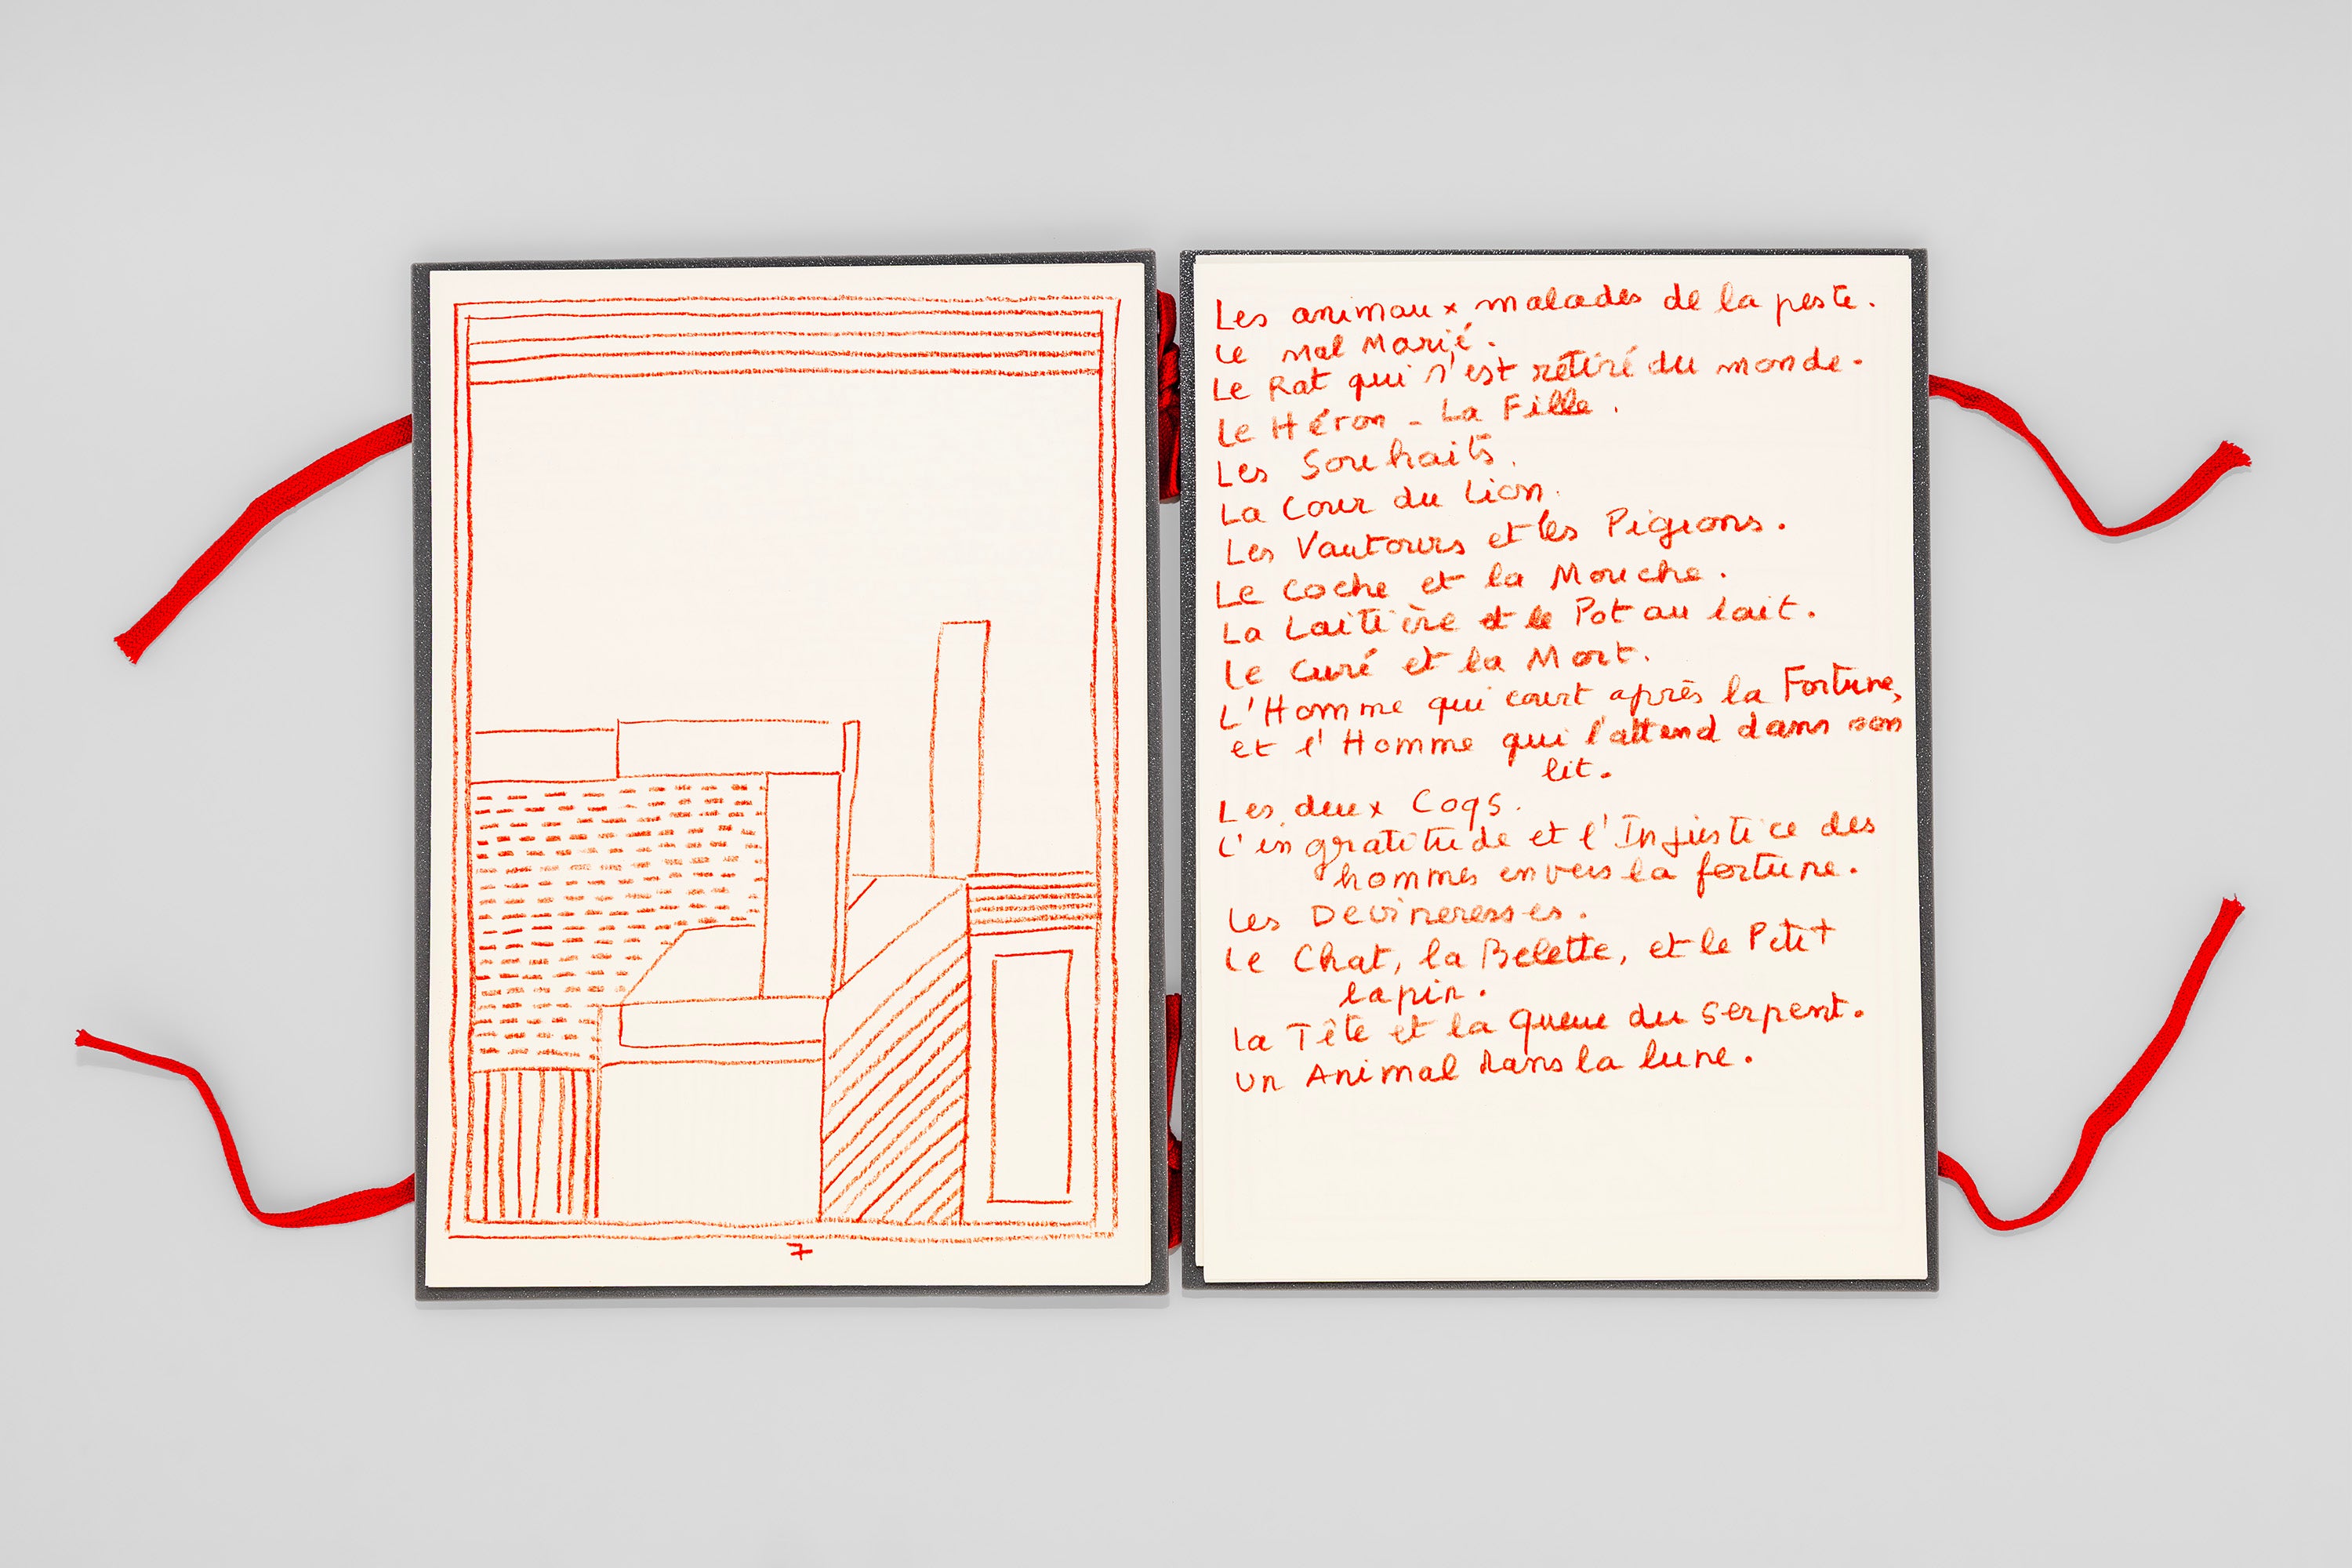 7
Les animaux malades de la peste.
Le Mal Marié.
Le Rat qui s'est rétiré du monde.
Le Héron - La Fille.
Les Souhaits.
La Cour du Lion.
Les Vautours et les Pigeons.
Le Coche et la Mouche.
La Laitière et le Pot au lait.
Le Curé et la Mort.
L'Homme qui court après la Fortune,
et l'Homme qui l'attend dans son
lit.
Les deux Coqs.
L'ingratitude et l'Injustice des
hommes envers la fortune.
Les Devineresses.
Le Chat, la Belette, et le Petit
lapin.
La Tête et la Queue du Serpent.
Un Animal dans la lune.